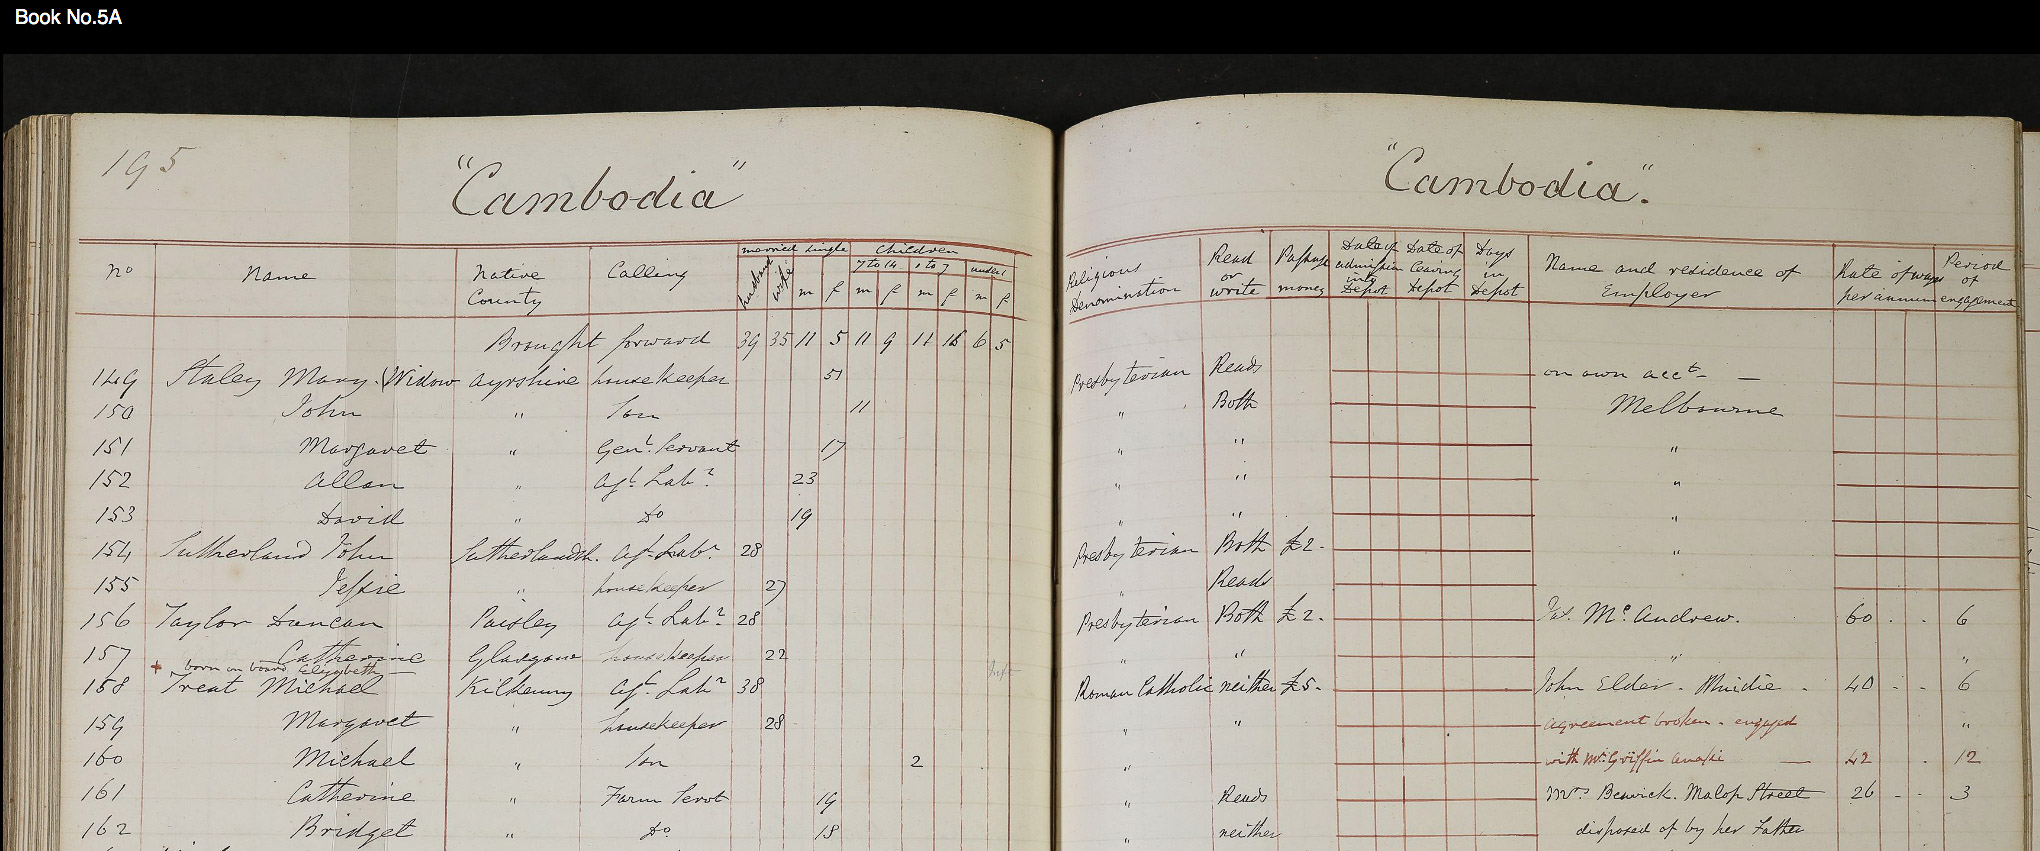 Book No.5A
195
"Cambodia"
"Cambodia".
married single Children
no Name Native County Calling husband wife m f 7 to 14 m f 1 to 7 m f under 1 m f
Religious Denomination Read or write Passage money Date of admission into Depot Date of leaving Depot Days in Depot Name and residence of Employer Rate of wages per annum Period of engagement
Brought forward 39 35 11 5 11 9 11 16 6 5
149 Staley Mary (Widow Ayrshire housekeeper 51 Presbyterian Reads on own acct —
150 John " Son 11 " Both Melbourne
151 Margaret " Genl. Servant 17 " " "
152 Allan " Agl. Labr 23 " " "
153 David " Do 19 " " "
154 Sutherland John Sutherlandsh. Agl. Labr 28 Presbyterian Both £2 - "
155 Jessie " housekeeper 27 " Reads
156 Taylor Duncan Paisley Agl. Labr 28 Presbyterian Both £2 - Jas. Mc.Andrew. 60 . . 6
157 Catherine Glasgow housekeeper 22 " " " "
+ born on board Elizabeth
158 Treat Michael Kilkenny Agl. Labr 38 Roman Catholic neither £5 - John Elder - 40 - - 6
159 Margaret " housekeeper 28 " " agreement broken - engaged "
160 Michael " Son 2 " with Mr. Griffin — 42 . 12
161 Catherine " Farm Servt 19 " Reads Mrs Berwick. Malop Street 26 - - 3
162 Bridget " Do 18 " neither disposed of by her Father